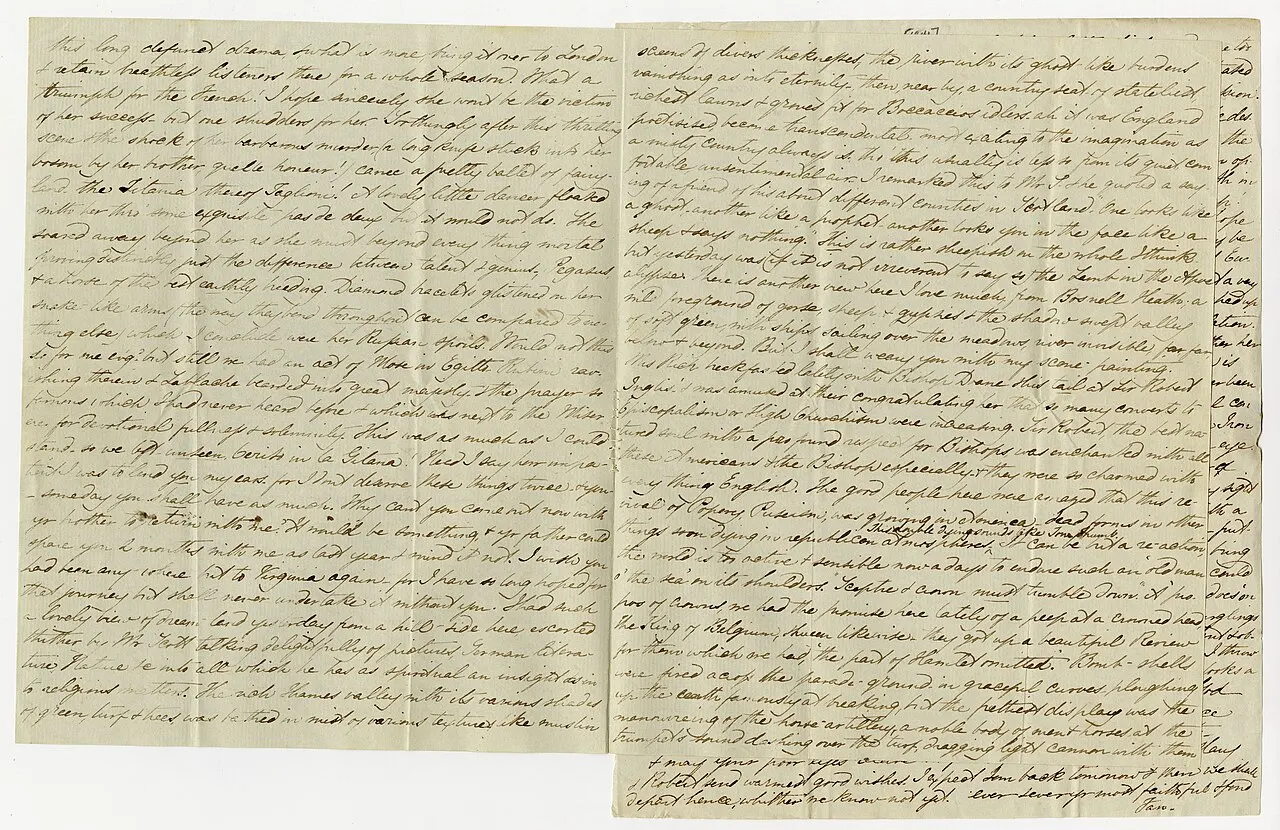 this long defunct drama, & what is more, bring it over to London
& retain breathless listeners there for a whole season. What a
triumph for the French! I hope sincerely she won't be the victim
of her success but one shudders for her. Forthingly after this thrilling
scene & the shock of her barbarous murder, (a long knife stuck into her
bosom by her brother quelle horreur!) came a pretty ballet of fairy-
land. the Titania thereof Taglioni! A lovely little dancer floated
with her thro' some exquisite pas de deux but it would not do. She
soared away beyond her as she must beyond every thing mortal
proving distinctly just the difference between talent & genius, Pegasus
& a horse of the best earthly breeding. Diamond bracelets glistened on her
snake-like arms (the way they bend throughout can be compared to no-
thing else) which I conclude were her Russian spoils. Would not this
do for one evg: but still we had an act of Mose in Egitto Rubini rav-
ishing therein & Lablache bearded into great majesty & the prayer so
famous which I had never heard before & which was next to the Miser-
ere for devotional fullness & solemnity. This was as much as I could
stand. so we left unseen, Cerito in "la Gitana". Need I say how impa-
tient I was to lend you my ears. for I don't deserve these things twice. & you
someday you shall have as much. Why cant you come out now with
yr brother to return with me it would be something & yr father could
spare you 2 months with me as last year & mind it not. I wish you
had been any-where but to Virginia again- for I have so long hoped for
that journey, but shall never undertake it without you. I had such
a lovely view of dream-land yesterday from a hill-side here escorted
thither by Mr Scott talking delightfully of pictures, German litera-
ture Nature &c into all which he has as spiritual an insight as in-
to religious matters. The rich Thames valley with its various shades
of green, turf & trees, was bathed in mist of various textures, like muslin
screens of divers thicknesses, the river with its ghost-like burdens
vanishing as into eternity- then near by, a country seat of stateliest
richest lawns & groves fit for Boccaccio's idlers. ah it was England
poetised, become transcendental. most exciting to the imagination as
a misty country always is, tho' this usually is less so from its quiet com-
fortable unsentimental air. I remarked this to Mr S. & he quoted a say-
ing of a friend of his about different counties in Scotland. One looks like
a ghost. another like a prophet another looks you in the face like a
sheep & says nothing." This is rather sheepish on the whole I think
but yesterday was if it is not irreverent to say so the Lamb in the Apoc-
alypse. There is another view here I love much, from Bosnell Heath, a
wild foreground of gorse sheep & gypsies & the shadow swept valley
of soft green, with ships sailing over the meadows, river invisible, far far
below & beyond. But I shall weary you with my scene painting.
Mrs Rich breakfasted lately with Bishop Doane this at Sir Robert
Inglis'. I was amused at their congratulating her that so many converts to
Episcopalism or High Churchism were increasing. Sir Robert the best na-
tured soul with a profound respect for Bishops was enchanted with all
these Americans & the Bishop especially, & they were so charmed with
every thing English. The good people here were amazed that this re-
vival of Popery, Puseism, was growing in America, dead forms in other
This double dying sounds like Tom Thumb.
things soon dying in republican atmospheres, It can be but a re-action
the world is too active & sensible now a days to endure such an old man
o' the sea on its shoulders. Sceptre & crown must tumble down. "A pro-
pos of crowns, we had the promise here lately of a peep at a crowned head
the King of Belgium, Queen likewise. they got up a beautiful Review
for them which we had, "the part of Hamlet omitted". Bomb-shells
were fired across the parade-ground in graceful curves, ploughing
up the earth, famously at breaking, but the prettiest display was the
manouvreing of the horse-artillery, a noble body of men & horses at the
trumpet's sound dashing over the turf, dragging light cannon with them
& may your poor eyes own
Robert send warmest good wishes. I expect Sam back tomorrow & then we shall
depart hence, whither we know not yet. ever & ever yr most faithful & fond
Fan-